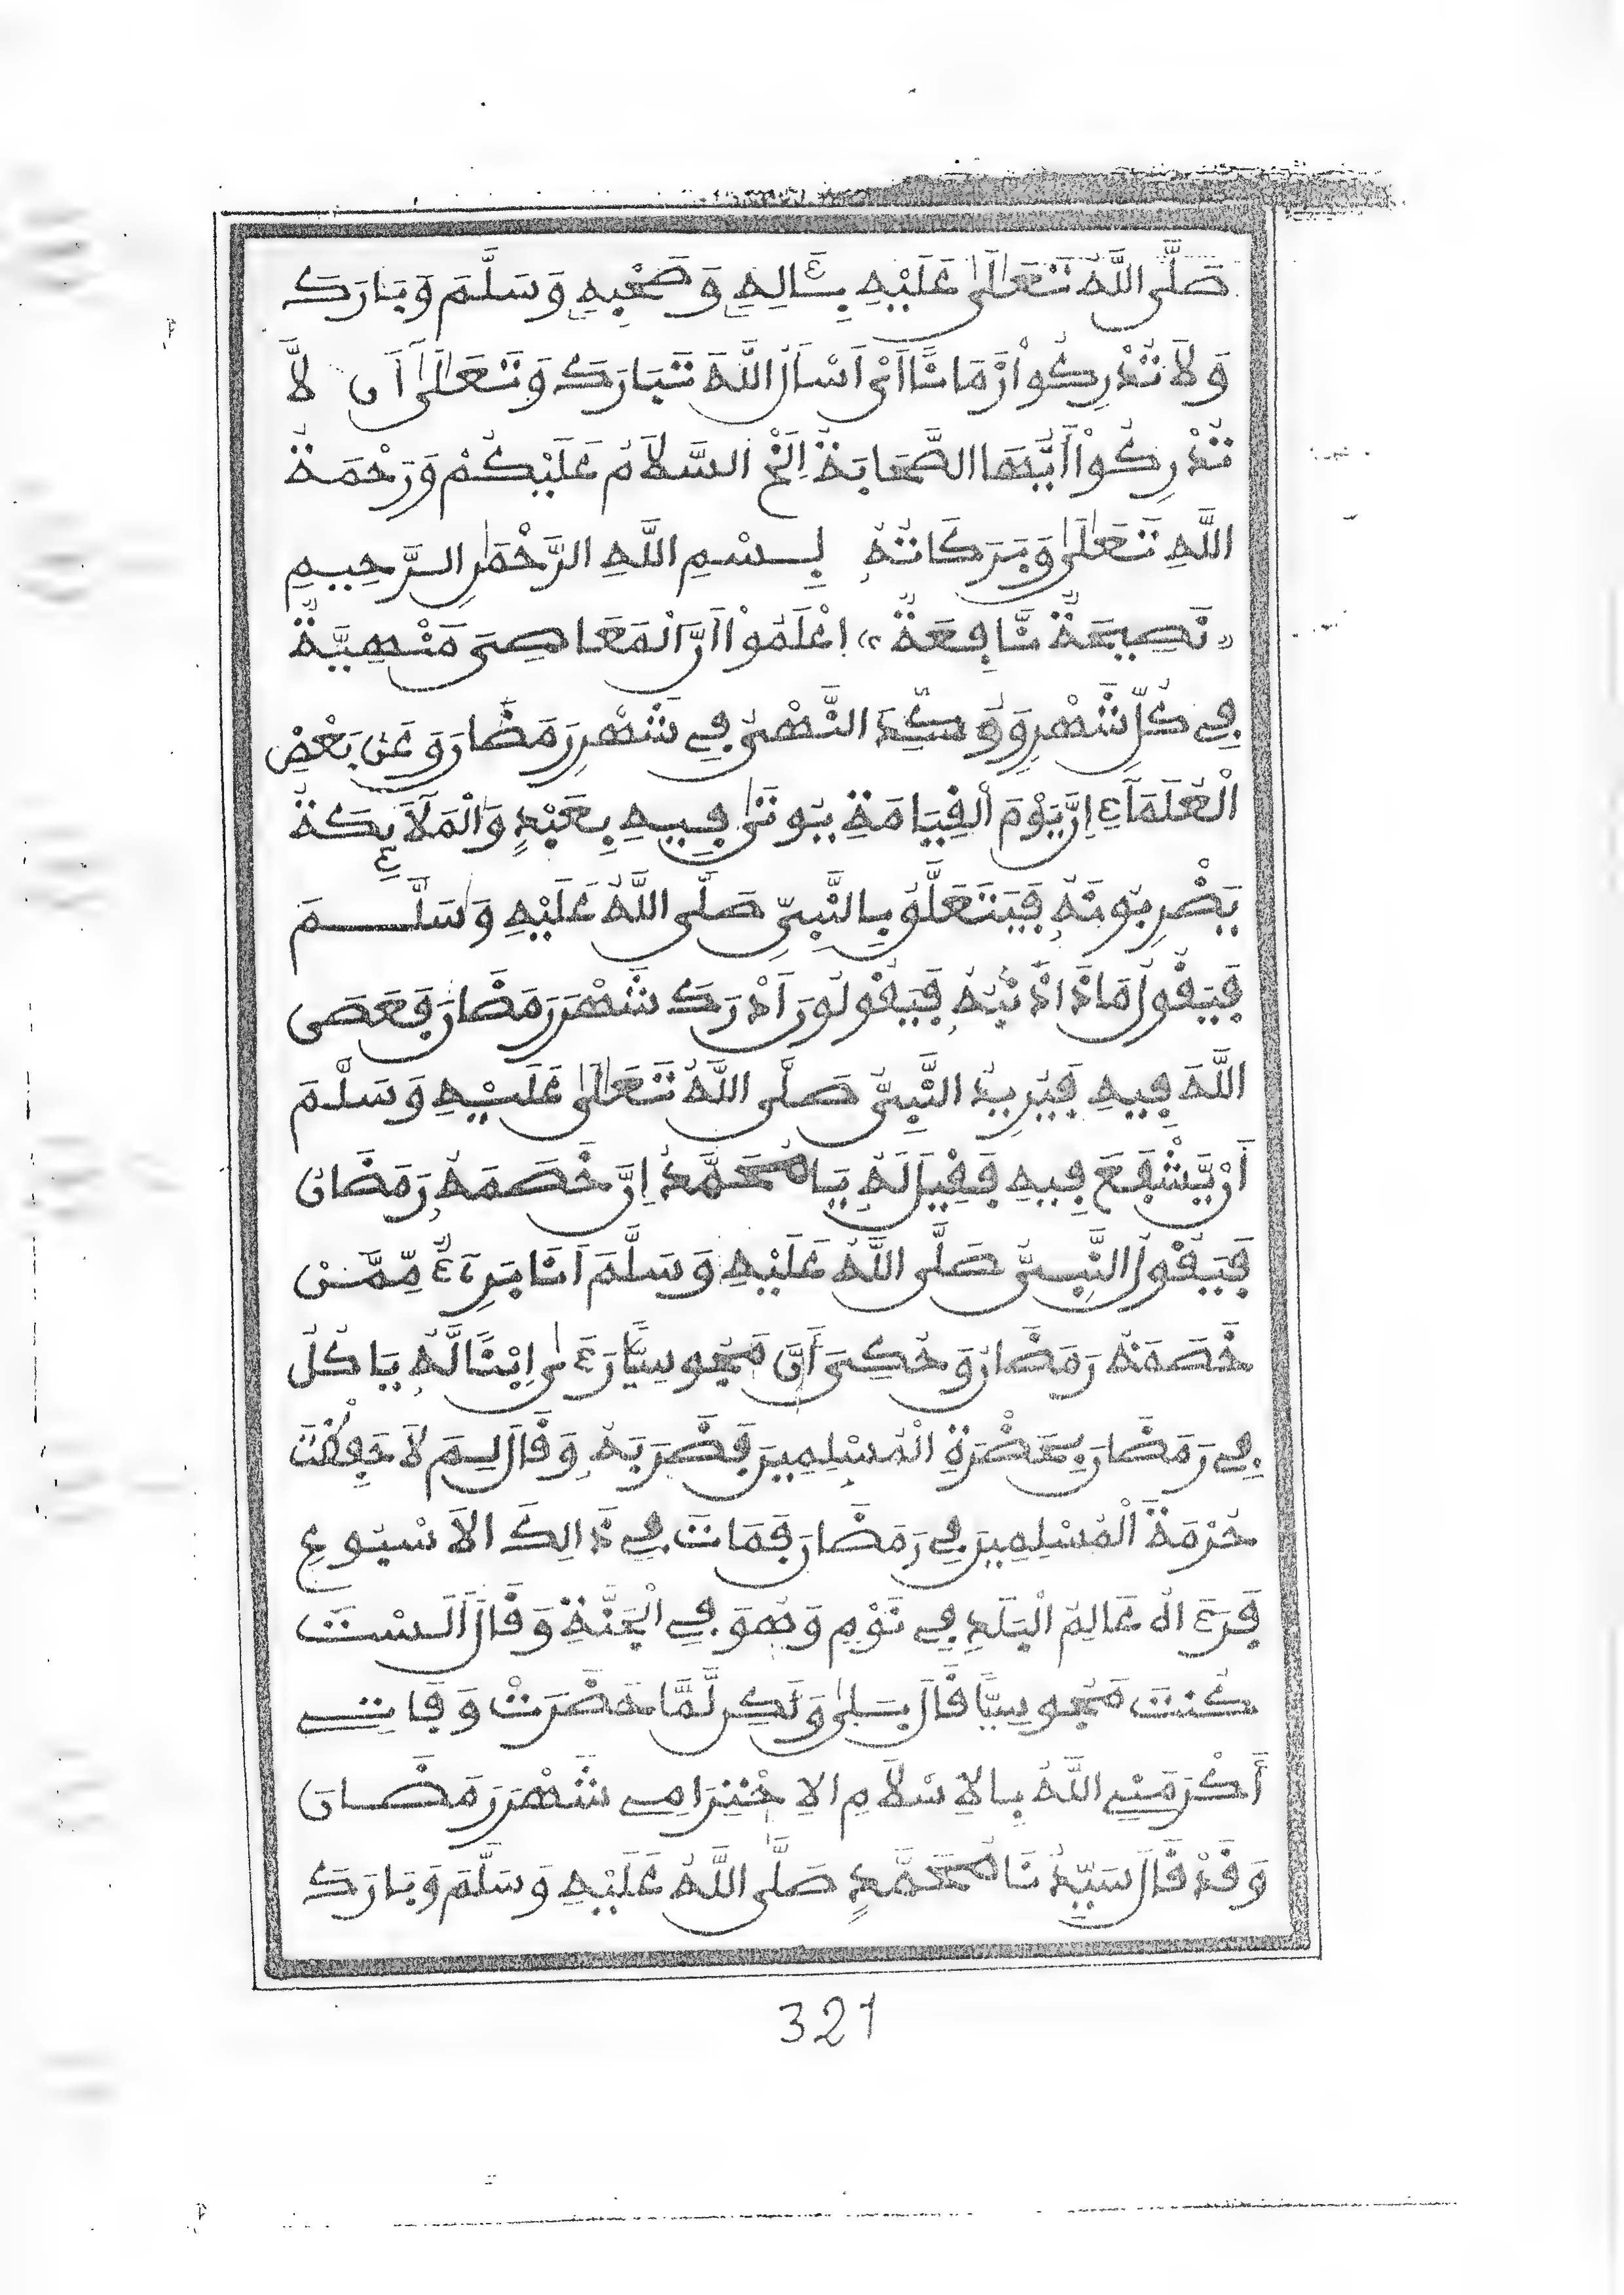 صَلَّى اللَّهُ تَعَالَىٰ عَلَيْهِ بِـَٔالِهِ وَصَحْبِهِ وَسَلَّمَ وَبَارَكَ
وَلَا تُدْرِكُواْ زَمَانًا أَنِّى أَسْأَلُ اللَّهَ تَبَارَكَ وَتَعَالَىٰ أَن لَّا
تُدْرِكُواْ أَيُّهَا الصَّحَابَةُ إِلَخْ السَّلَامُ عَلَيْكُمْ وَرَحْمَةُ
اللَّهِ تَعَالَىٰ وَبَرَكَاتُهُ بِسْمِ اللَّهِ الرَّحْمَٰنِ الرَّحِيمِ
«نَصِيحَةٌ نَّافِعَةٌ» اعْلَمُواْ أَنَّ الْمَعَاصِىَ مَنْهِيَّةٌ
فِى كُلِّ شَهْرٍ وَوُكِّدَ النَّهْىُ فِى شَهْرِ رَمَضَانَ وَعَنْ بَعْضِ
الْعُلَمَآءِ إِنَّ يَوْمَ الْقِيَامَةِ يُوتَىٰ فِيهِ بِعَبْدٍ وَالْمَلَآئِكَةُ
يَضْرِبُونَهُ فَيَتَعَلَّقُ بِالنَّبِىِّ صَلَّى اللَّهُ عَلَيْهِ وَسَلَّمَ
فَيَقُولُ مَاذَا ذَنْبُهُ فَيَقُولُونَ أَدْرَكَ شَهْرَ رَمَضَانَ فَعَصَى
اللَّهَ فِيهِ فَيُرِيدُ النَّبِىُّ صَلَّى اللَّهُ تَعَالَىٰ عَلَيْهِ وَسَلَّمَ
أَنْ يَّشْفَعَ فِيهِ فَقِيلَ لَهُ يَا مُحَمَّدُ إِنَّ خَصَمَهُ رَمَضَانُ
فَيَقُولُ النَّبِىُّ صَلَّى اللَّهُ عَلَيْهِ وَسَلَّمَ أَنَا بَرِىٓءٌ مِّمَّنْ
خَصَمَهُ رَمَضَانُ وَحُكِىَ أَنَّ مَجُوسِيًّا رَءَىٰ ابْنًا لَّهُ يَاكُلُ
فِى رَمَضَانَ بِحَضْرَةِ الْمُسْلِمِينَ فَضَرَبَهُ وَقَالَ لِمَ لَا حَفِظْتَ
حُرْمَةَ الْمُسْلِمِينَ فِى رَمَضَانَ فَمَاتَ فِى ذَالِكَ الْأُسْبُوعِ
فَرَءَاهُ عَالِمُ الْبَلَدِ فِى نَوْمِ وَهُوَ فِى الْجَنَّةِ وَقَالَ أَلَسْتَ
كُنتَ مَجُوسِيًّا قَالَ بَلَىٰ وَلَكِن لَّمَّا حَضَرَتْ وَفَاتِى
أَكْرَمَنِى اللَّهُ بِالْإِسْلَامِ لِاحْتِرَامِى شَهْرَ رَمَضَانَ
وَقَدْ قَالَ سَيِّدُنَا مُحَمَّدٍ صَلَّى اللَّهُ عَلَيْهِ وَسَلَّمَ وَبَارَكَ
321